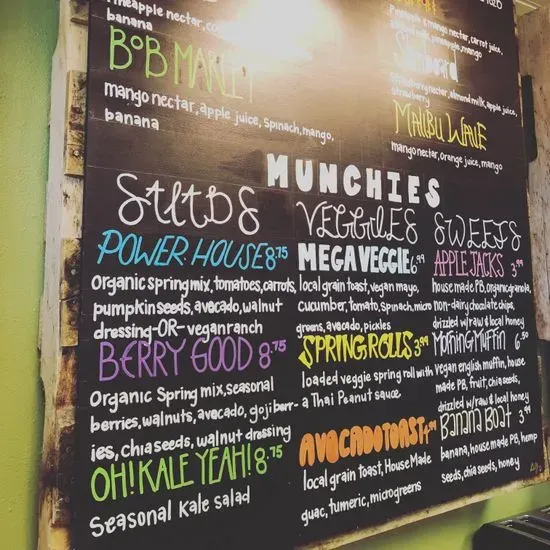 Pineapple nectar, co
banana
BOB MARLEY
mango nectar, apple juice, spinach, mango,
banana
Pineapple & mango nectar, carrot juice,
milk, pineapple, mango
nectar, almond milk, apple juice,
strawberry
MALIBU WAVE
mango nectar, orange juice, mango
MUNCHIES
POWER HOUSE 8.75
Organic spring mix, tomatoes, carrots,
pumpkin seeds, avocado, walnut
dressing-OR-vegan ranch
BERRY GOOD 8.75
Organic Spring mix, seasonal
berries, walnuts, avocado, goji berr-
ies, chia seeds, walnut dressing
OH! KALE YEAH! 8.75
Seasonal Kale salad
VEGGIES
MEGA VEGGIE 6.99
local grain toast, vegan mayo,
cucumber, tomato, Spinach, micro
greens, avocado, pickles
SPRING ROLLS 3.99
loaded veggie spring roll with
a Thai Peanut sauce
AVOCADO TOAST
local grain toast, House Made
guac, tumeric, microgreens
SWEETS
APPLE JACKS 3.99
house made PB, organic granola,
non-dairy chocolate chips,
drizzled w/ raw & local honey
Morning Muffin 6.50
vegan english muffin, house
made PB, fruit, chia seeds,
drizzled w/ raw & local honey
Banana Boat 3.99
banana, house made PB, hemp
seeds, chia seeds, honey